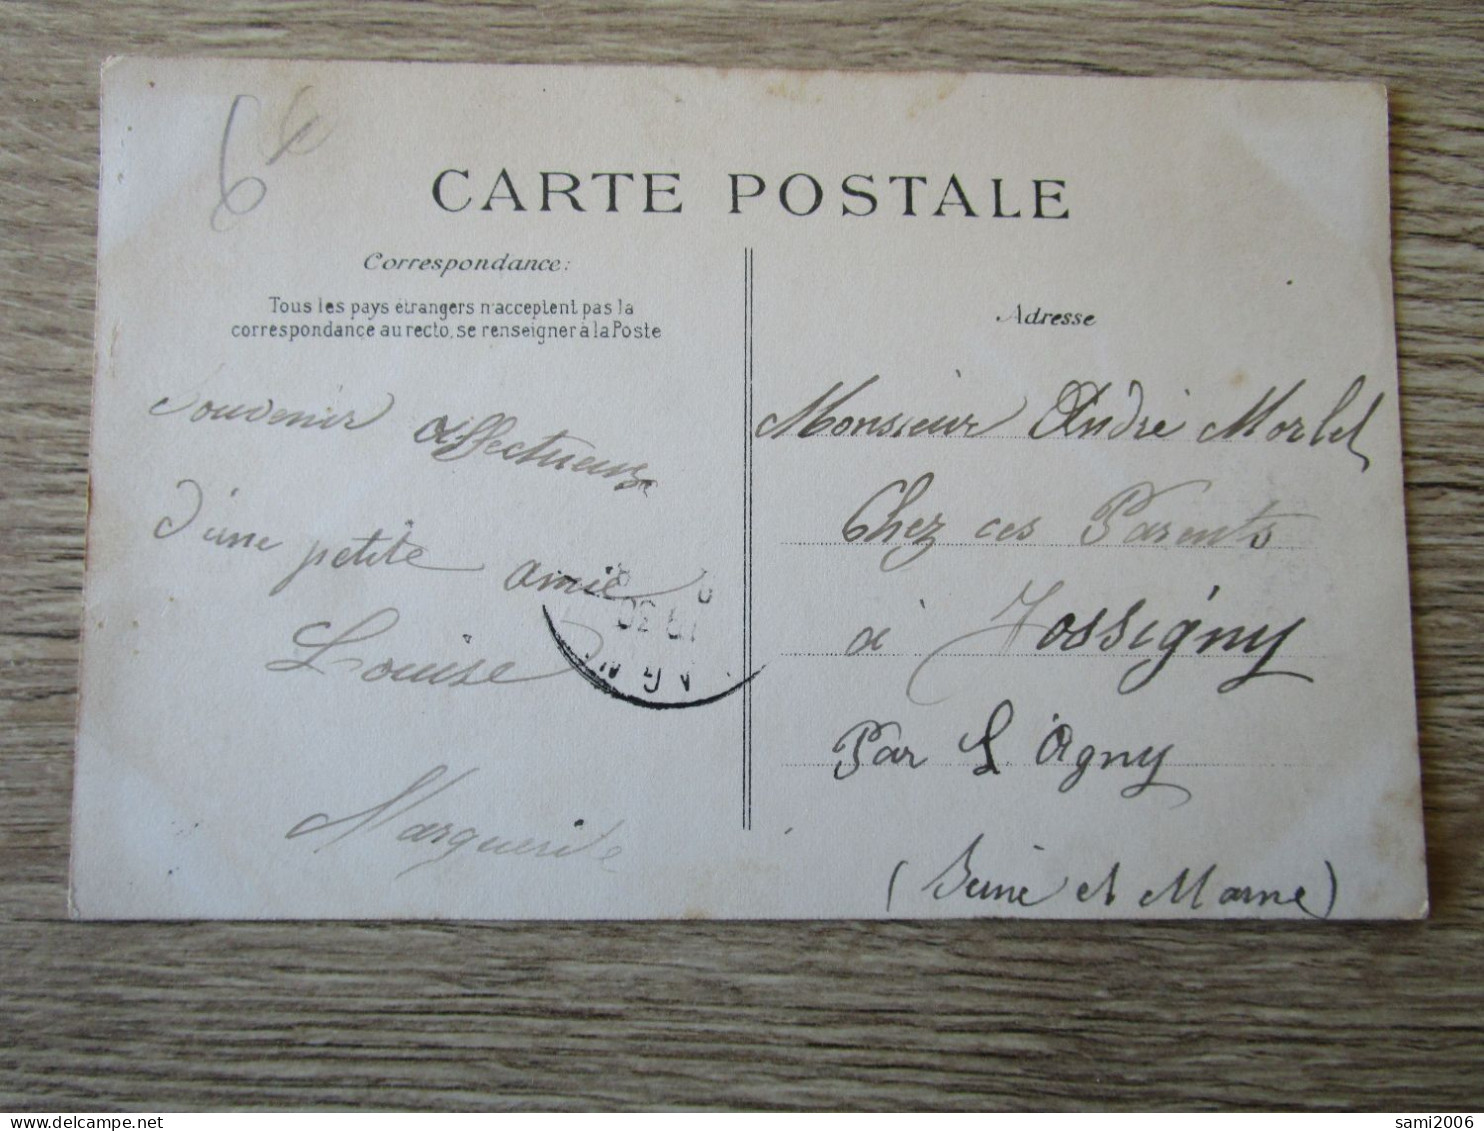 CARTE POSTALE
Correspondance:
Tous les pays étrangers n'acceptent pas la
correspondance au recto, se renseigner à la Poste
Souvenir affectueux
d'une petite amie
Louise
Marguerite
Adresse
Monsieur André Morlet
Chez ces Parents
à Jossigny
Par L'agny
(Seine et Marne)
sami2006